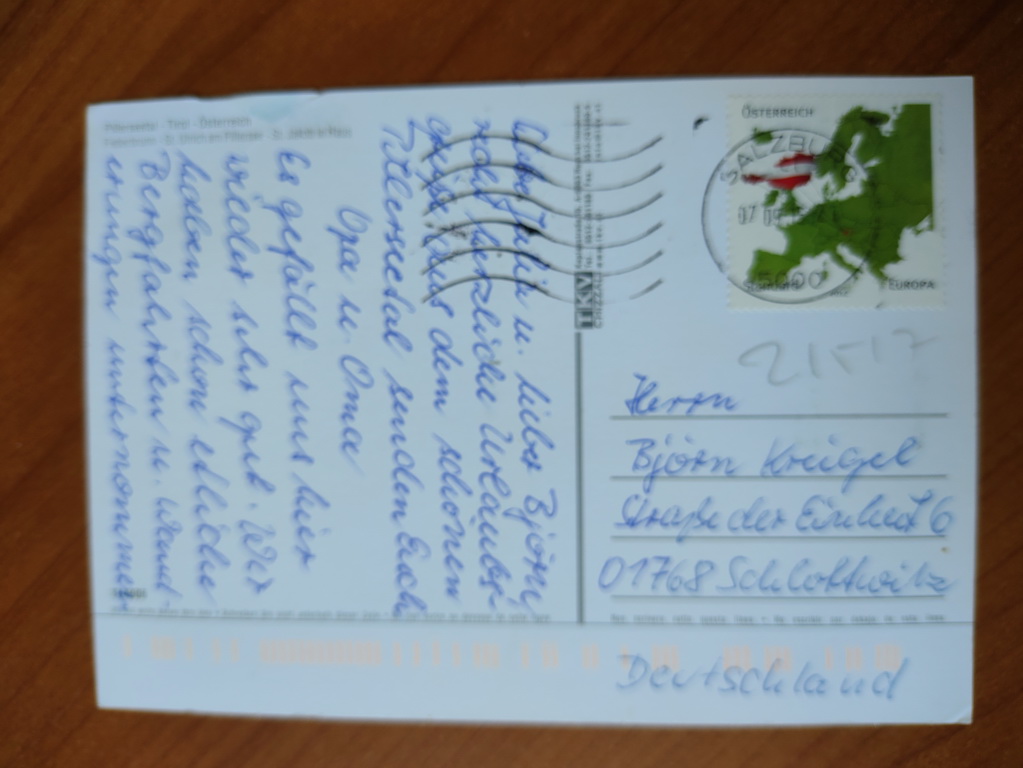 Pillerseetal - Tirol - Österreich
Fieberbrunn - St. Ulrich am Pillersee - St. Jakob in Haus
Liebe Julia u. lieber Björn,
recht herzliche Urlaubs-
grüße aus dem schönen
Pillerseetal senden Euch
Opa u. Oma
Es gefällt uns hier
wieder sehr gut. Wir
haben schon etliche
Bergfahrten u. Wand.
erungen unternommen
ÖSTERREICH
EUROPA
SALZBURG
07 09
5000
21517
Herrn
Björn Kreigel
Straße der Einheit 6
01768 Schlottwitz
Deutschland